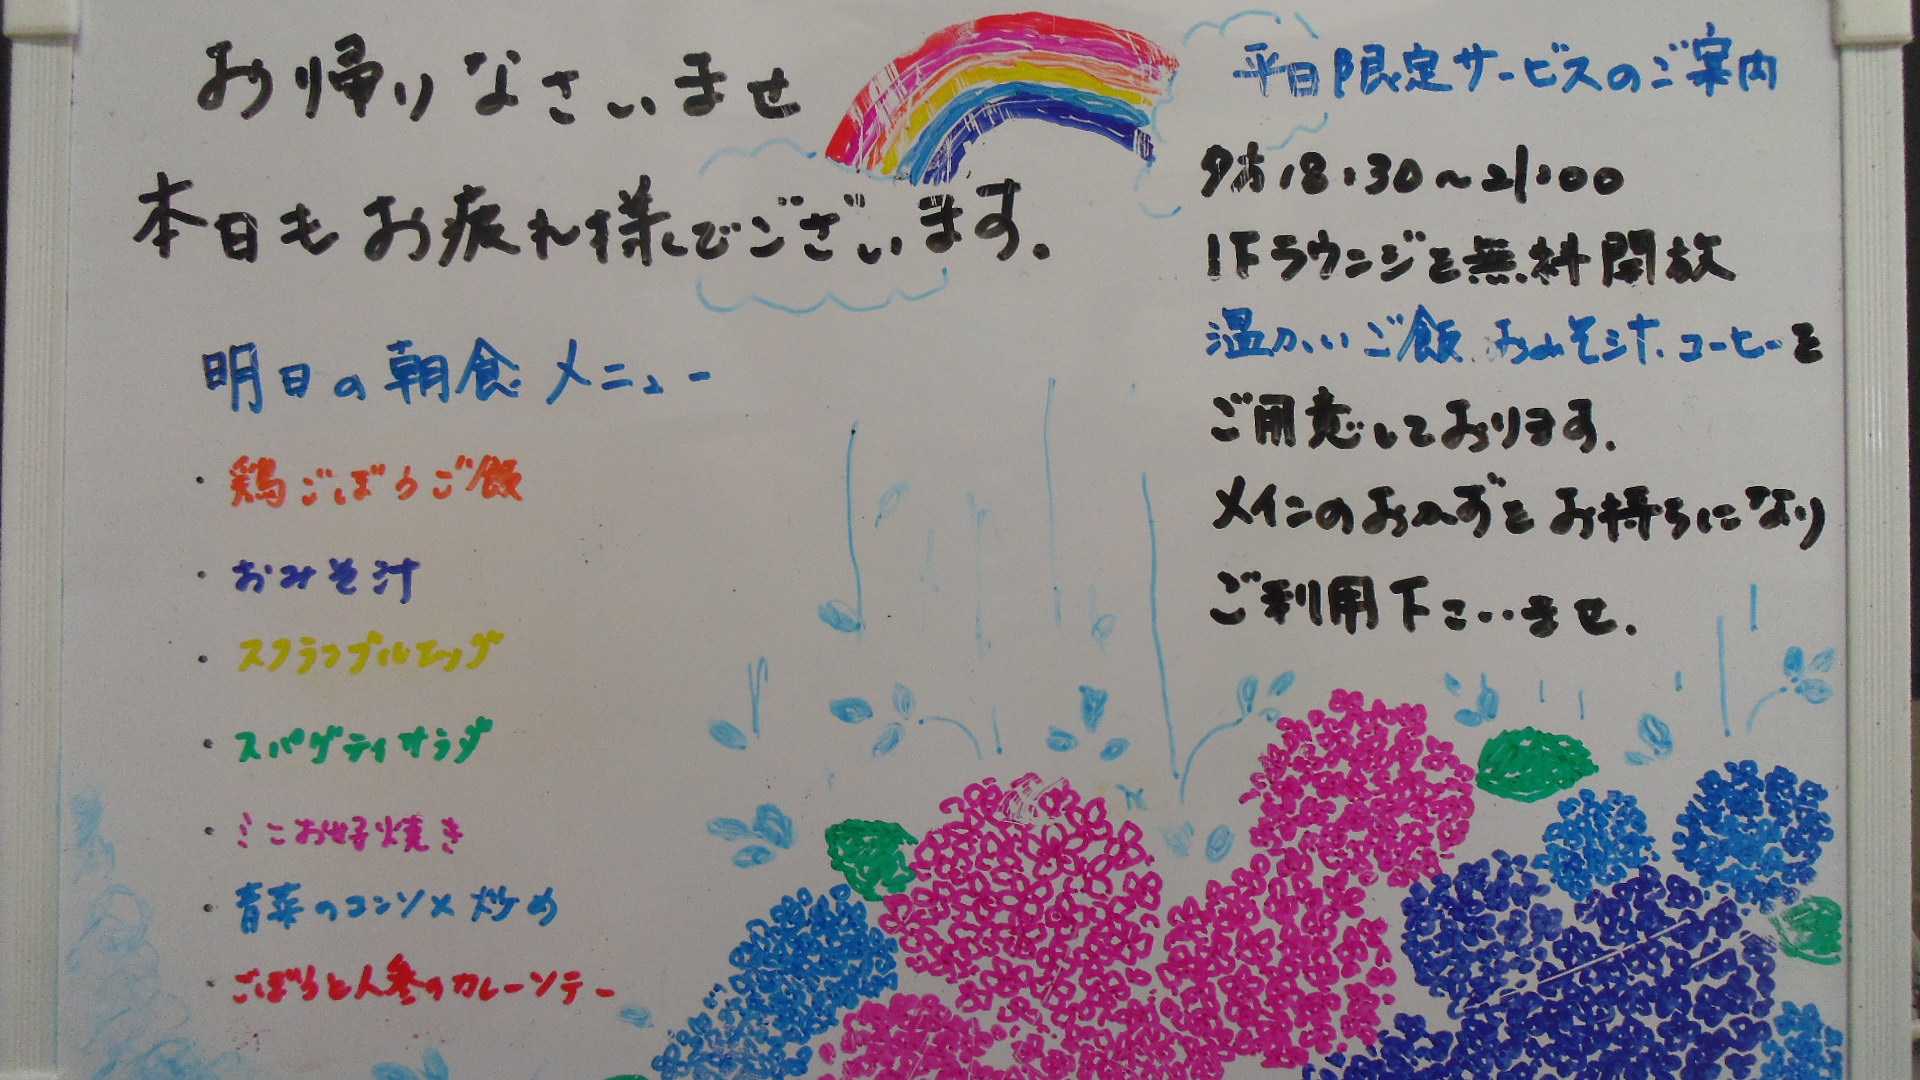 お帰りなさいませ
本日もお疲れ様でございます。
明日の朝食メニュー
・鶏ごぼうご飯
・おみそ汁
・スクランブルエッグ
・スパゲティサラダ
・ミニお好み焼き
・青菜のコンソメ炒め
・ごぼうと人参のカレーソテー
平日限定サービスのご案内
夕方18:30~21:00
1Fラウンジを無料開放
温かいご飯、おみそ汁、コーヒーを
ご用意しております。
メインのおかずをお持ちになり
ご利用下さいませ。